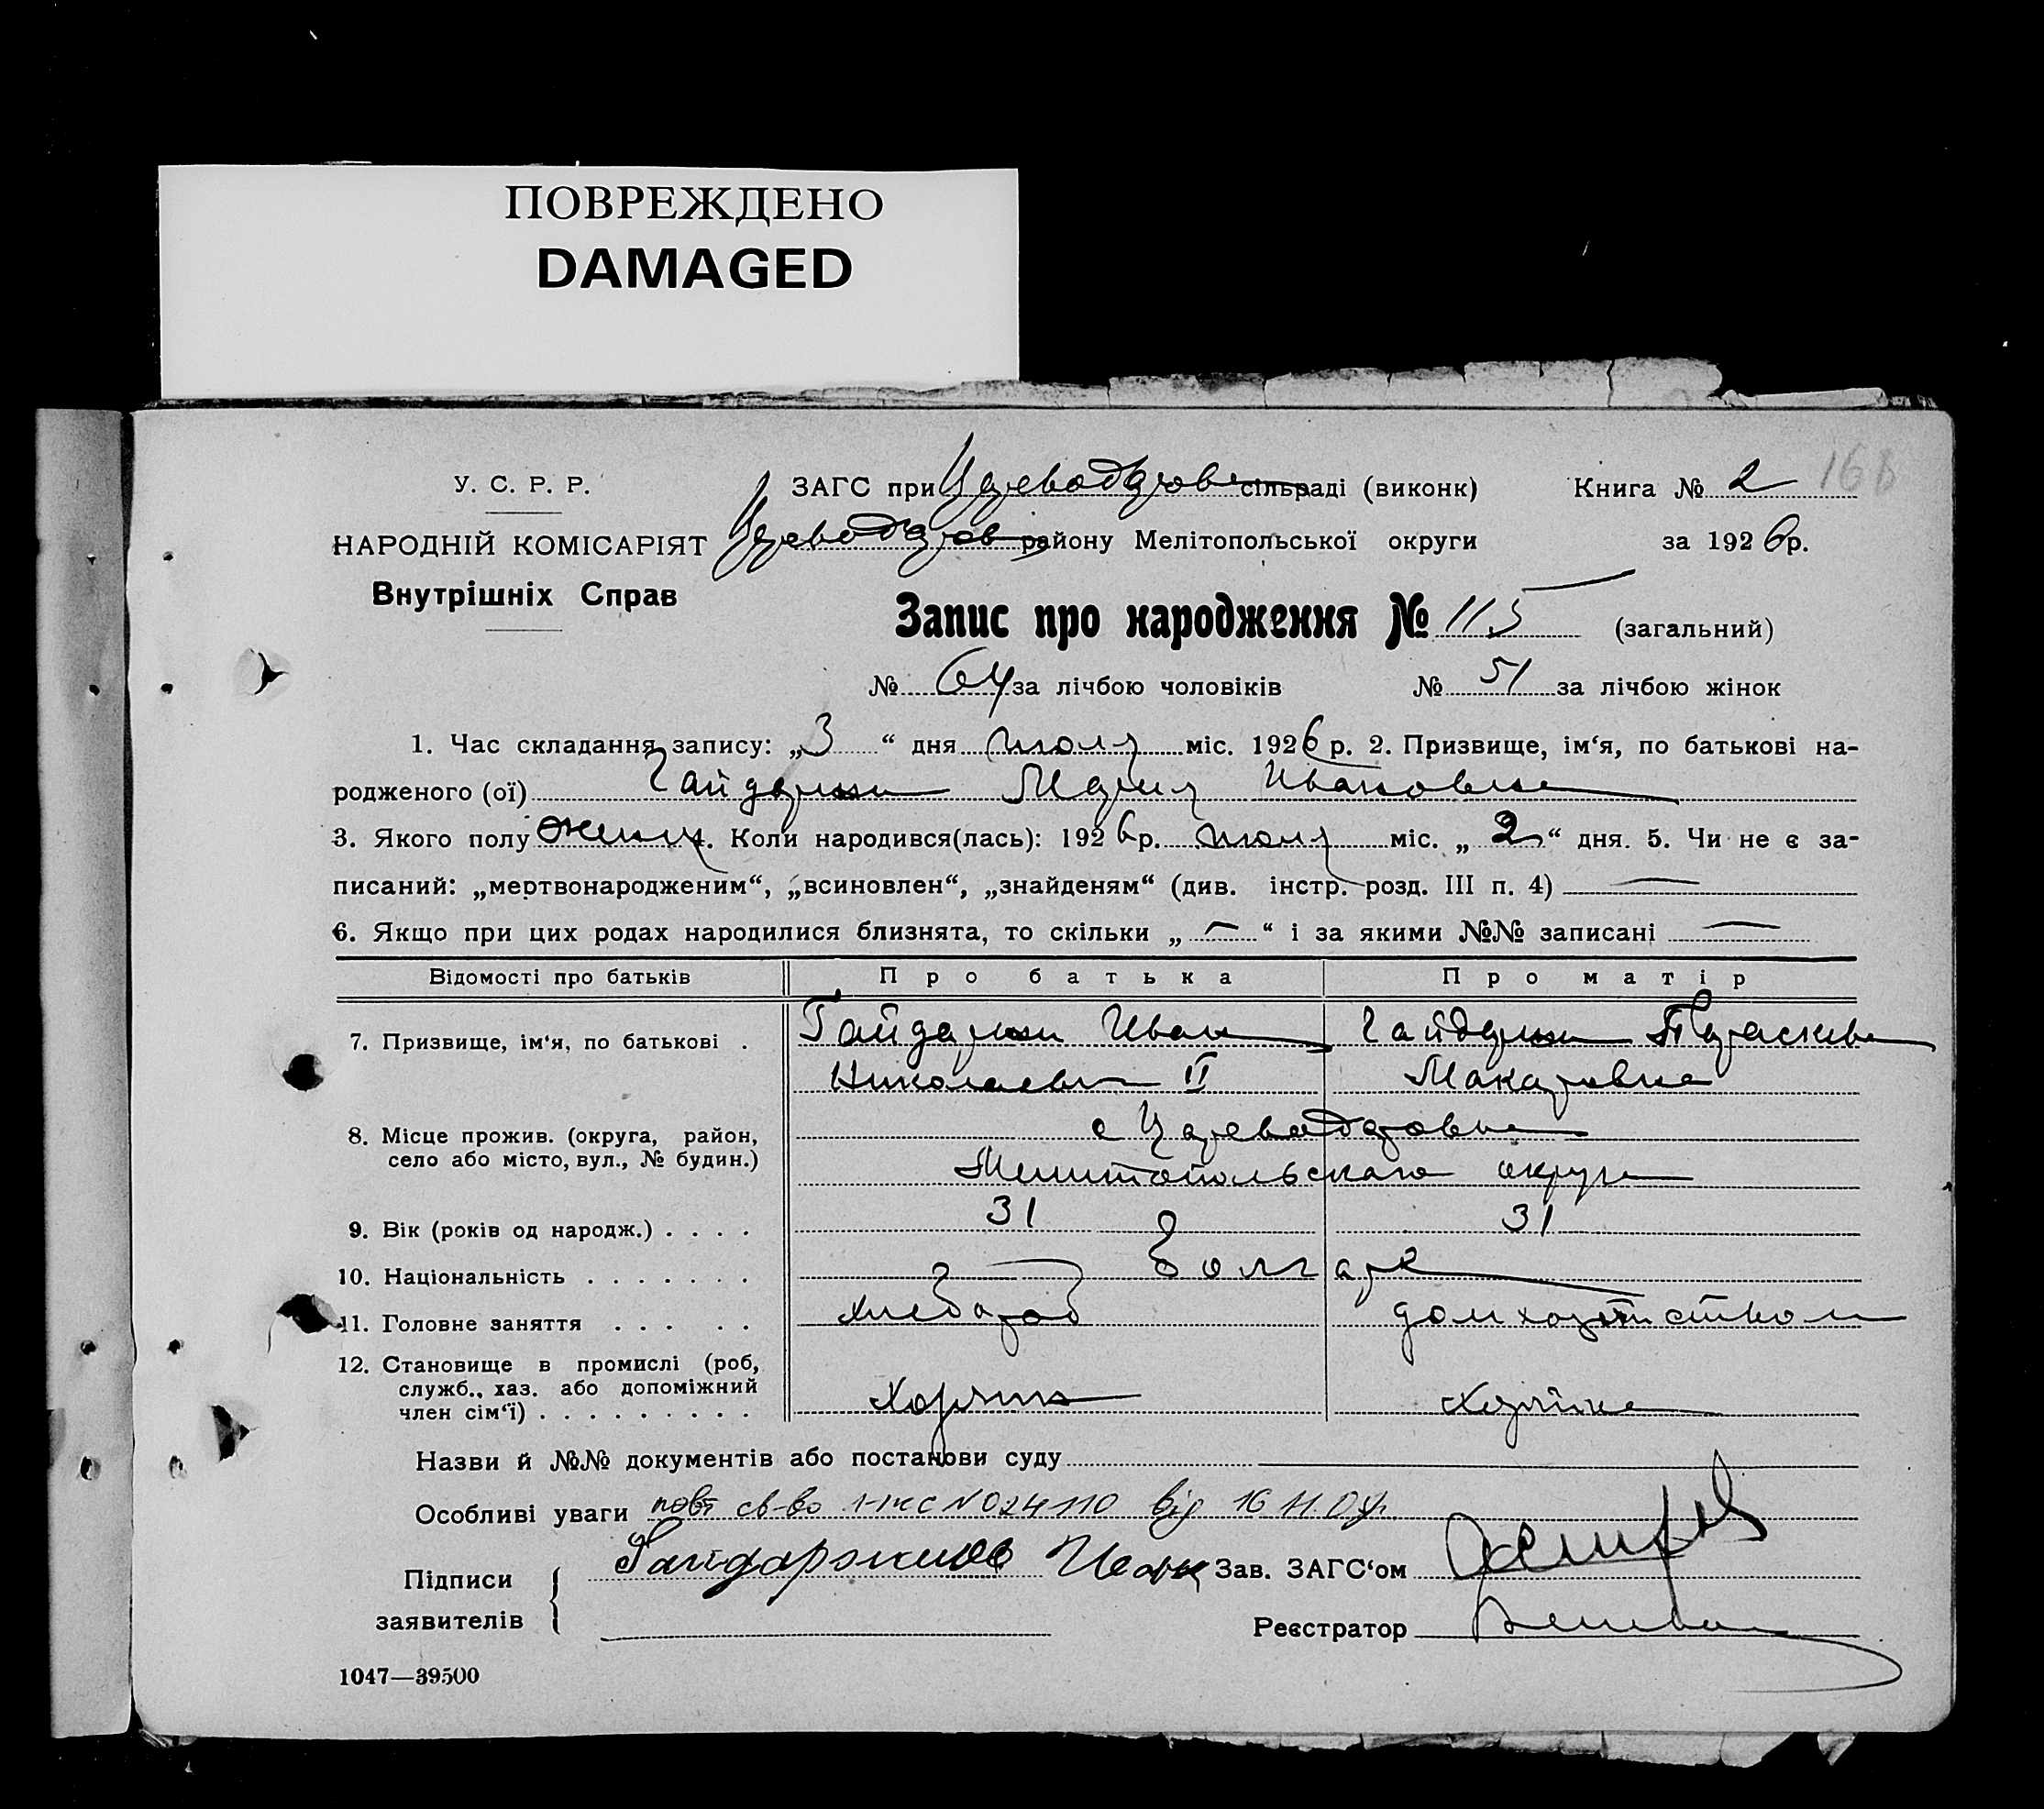 ПОВРЕЖДЕНО
DAMAGED
168
У. С. Р. Р. ЗАГС при Цареводаров сільраді (виконк) Книга № 2
НАРОДНІЙ КОМІСАРІЯТ Цареводаров району Мелітопольської округи за 1926 р.
Внутрішніх Справ
Запис про народження № 115 (загальний)
№ 64 за лічбою чоловіків № 51 за лічбою жінок
1. Час складання запису: „3“ дня июля міс. 1926 р. 2. Призвище, ім‘я, по батькові на-
родженого (ої) Гайдаржи Мария Ивановна
3. Якого полу женщ 4. Коли народився(лась): 1926 р. июля міс. „2“ дня. 5. Чи не є за-
писаний: „мертвонародженим“, „всиновлен“, „знайденям“ (див. інстр. розд. III п. 4) —
6. Якщо при цих родах народилися близнята, то скільки „—“ і за якими №№ записані —
Відомості про батьків Про батька Про матір
7. Призвище, ім‘я, по батькові . Гайдаржи Иван Гайдаржи Параскева
Николаевич II Макаровна
8. Місце прожив. (округа, район, с Цареводаровка
село або місто, вул., № будин.) Мелитопольского округа
9. Вік (років од народж.) . . . . 31 31
10. Національність . . . . . . . Болгаре
11. Головне заняття . . . . . Хлебороб домхозяйством
12. Становище в промислі (роб,
служб., хаз. або допоміжний Хозяин Хозяйка
член сім‘ї) . . . . . . . . .
Назви й №№ документів або постанови суду
Особливі уваги повт св-во 1-жс №024110 від 16 11.04р.
Підписи Гайдаржиов Иван Зав. ЗАГС‘ом
заявителів Реєстратор
1047—39500